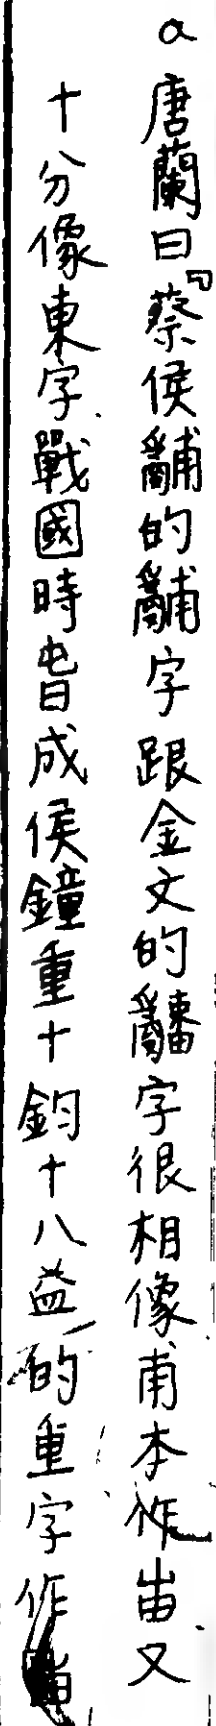 a 唐蘭曰『蔡侯䌛的䌛字跟金文的字很相像甫本作峀又
十分像東字、戰國時旾成侯鐘重十鈞十八益的重字作